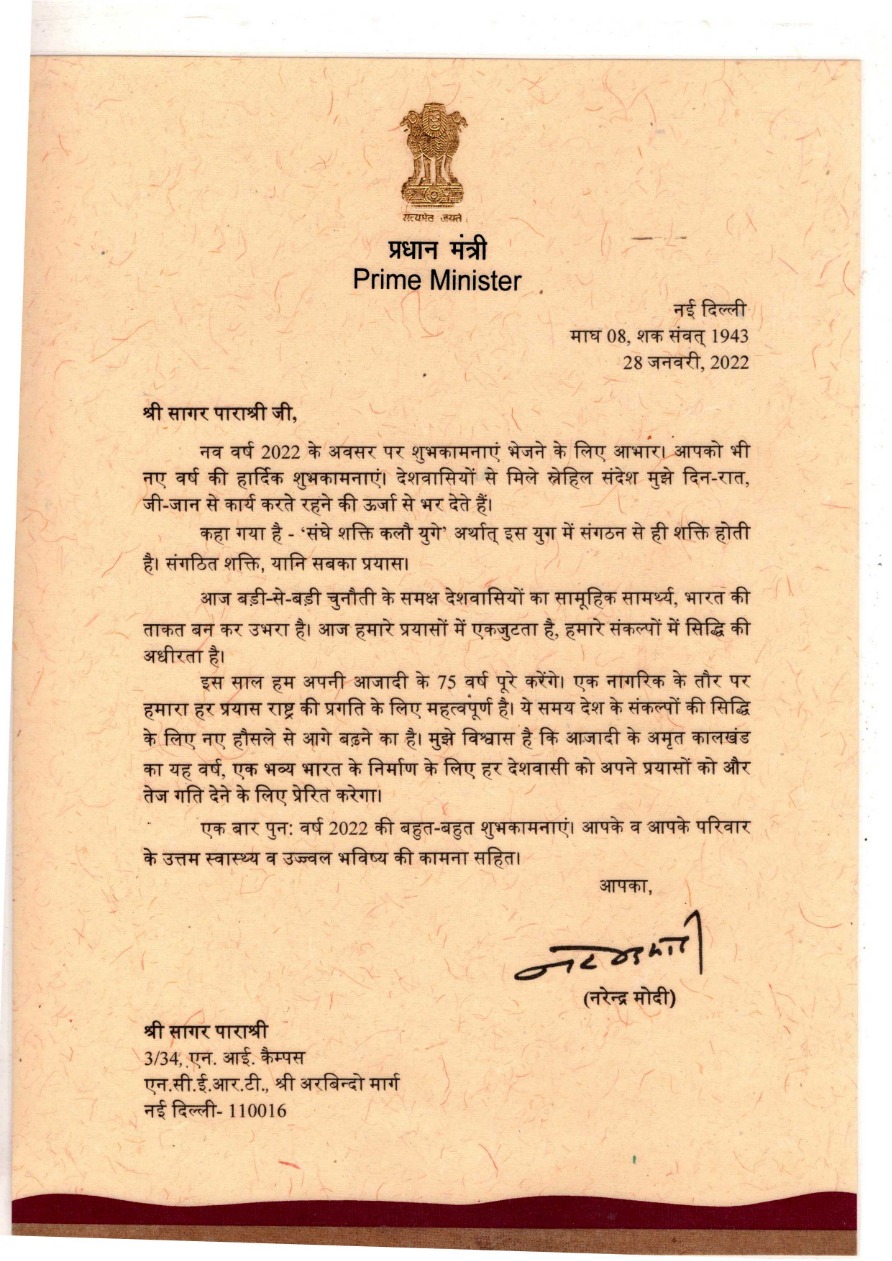 सत्यमेव जयते
प्रधान मंत्री
Prime Minister
नई दिल्ली
माघ 08, शक संवत् 1943
28 जनवरी, 2022
श्री सागर पाराश्री जी,
नव वर्ष 2022 के अवसर पर शुभकामनाएं भेजने के लिए आभार। आपको भी
नए वर्ष की हार्दिक शुभकामनाएं। देशवासियों से मिले स्नेहिल संदेश मुझे दिन-रात,
जी-जान से कार्य करते रहने की ऊर्जा से भर देते हैं।
कहा गया है - ‘संघे शक्ति कलौ युगे’ अर्थात् इस युग में संगठन से ही शक्ति होती
है। संगठित शक्ति, यानि सबका प्रयास।
आज बड़ी-से-बड़ी चुनौती के समक्ष देशवासियों का सामूहिक सामर्थ्य, भारत की
ताकत बन कर उभरा है। आज हमारे प्रयासों में एकजुटता है, हमारे संकल्पों में सिद्धि की
अधीरता है।
इस साल हम अपनी आजादी के 75 वर्ष पूरे करेंगे। एक नागरिक के तौर पर
हमारा हर प्रयास राष्ट्र की प्रगति के लिए महत्वपूर्ण है। ये समय देश के संकल्पों की सिद्धि
के लिए नए हौसले से आगे बढ़ने का है। मुझे विश्वास है कि आजादी के अमृत कालखंड
का यह वर्ष, एक भव्य भारत के निर्माण के लिए हर देशवासी को अपने प्रयासों को और
तेज गति देने के लिए प्रेरित करेगा।
एक बार पुन: वर्ष 2022 की बहुत-बहुत शुभकामनाएं। आपके व आपके परिवार
के उत्तम स्वास्थ्य व उज्ज्वल भविष्य की कामना सहित।
आपका,
नरेन्द्र मोदी
(नरेन्द्र मोदी)
श्री सागर पाराश्री
3/34, एन. आई. कैम्पस
एन.सी.ई.आर.टी., श्री अरबिन्दो मार्ग
नई दिल्ली- 110016